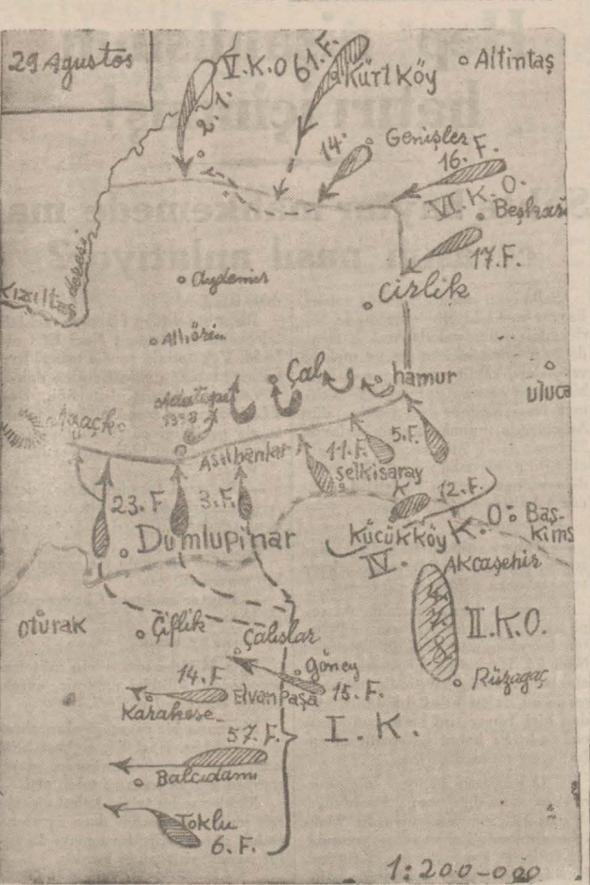 29 Ağustos
V.K.O
61.F.
Kürtköy
Altıntaş
2.1.
14.
Genişler
16. F.
VI. K. O.
Beşkarı
17.F.
Cirlik
Kızıltaş deresi
Aydemir
Allıören
Çal
hamur
uluca
Adatepe
Ağaçk.
Asılhanlar
11.F.
5.F.
Selkisaray
12.F.
23.F
3.F.
Dumlupınar
Küçükköy
IV. K. O.
Baş-
kims
Akcaşehir
II.K.O.
Oturak
Çiflik
Çalışlar
Göney
Rüzagaç
14.F
Elvanpaşa
15.F.
Karakese
57.F.
I. K.
Balcıdamı
Toklu
6.F.
1:200-000